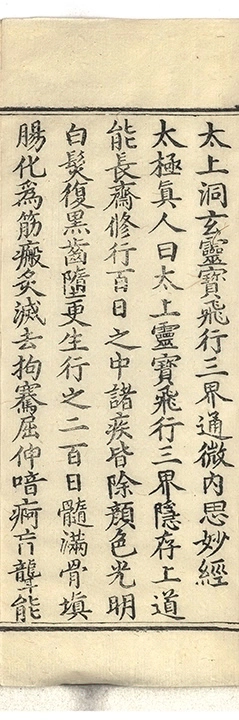 太上洞玄靈寶飛行三界通微內思妙經
太極真人曰太上靈寶飛行三界隱存上道
能長齋修行百日之中諸疾皆除顏色光明
白髮復黑齒墮更生行之二百日髓滿骨填
腸化為筋瘢炙滅去拘騫屈伸喑痾盲聾能